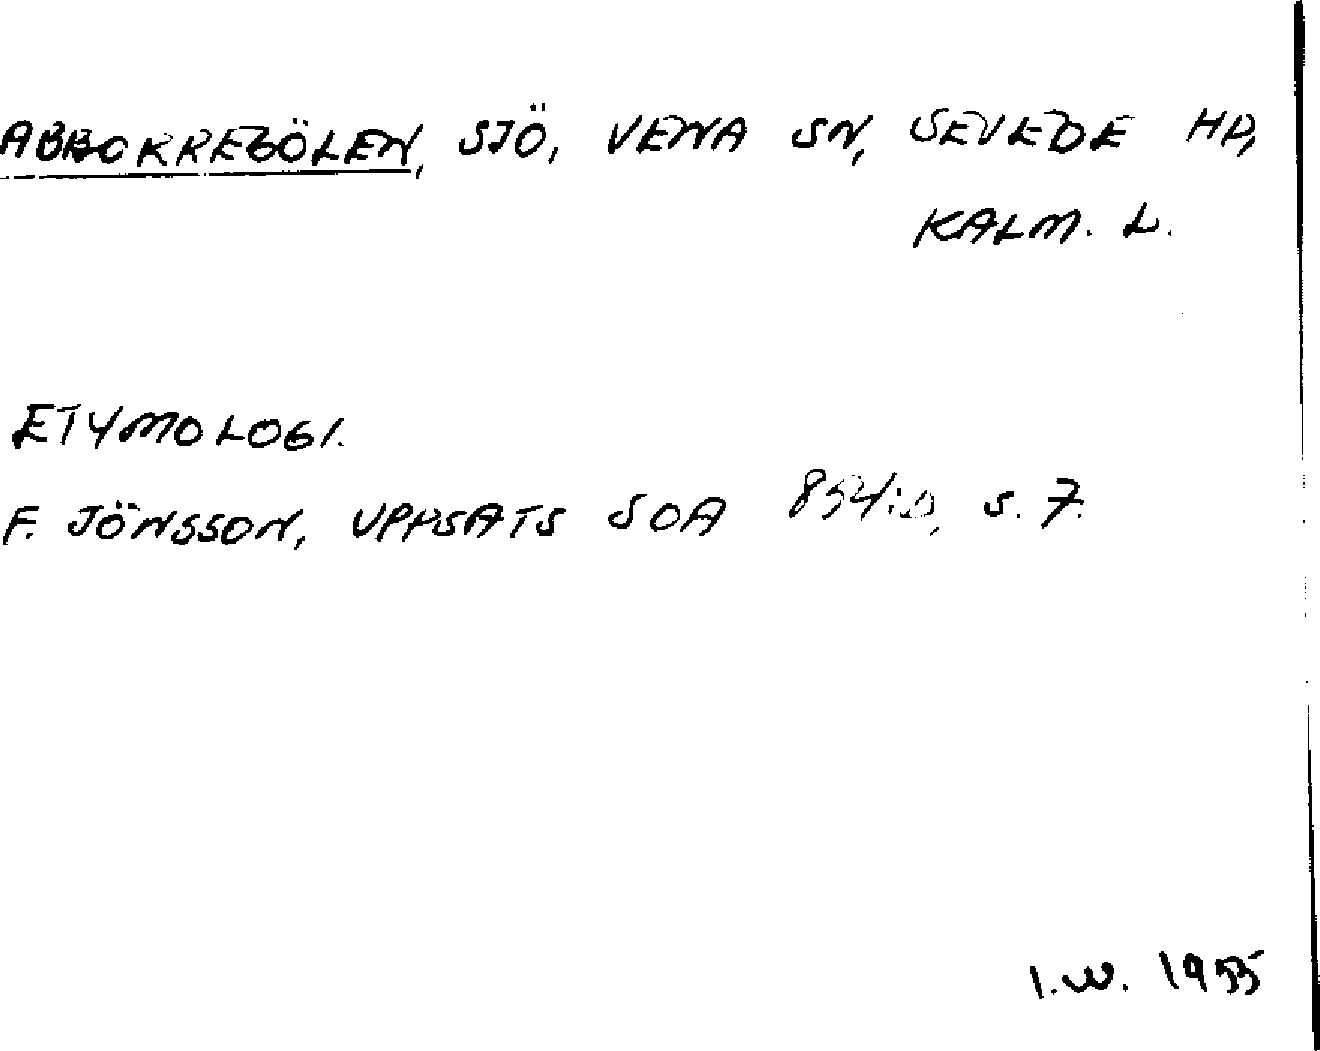 ABBORREBÖLEN, SJÖ, VENA SN, SEVEDE HD,
KALM. L.
ETYMOLOGI.
F. JÖNSSON, UPPSATS SOA s. 7.
I.W. 1955